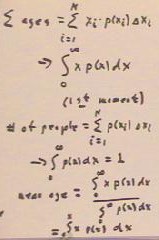 Σ ages = Σ_{i=1}^{N} x_i · p(x_i) Δx_i
→ ∫_0^∞ x p(x) dx
(1st moment)
# of people = Σ_{i=1}^{N} p(x_i) Δx_i
→ ∫_0^∞ p(x) dx = 1
mean age = ∫_0^∞ x p(x) dx / ∫_0^∞ p(x) dx
= ∫_0^∞ x p(x) dx